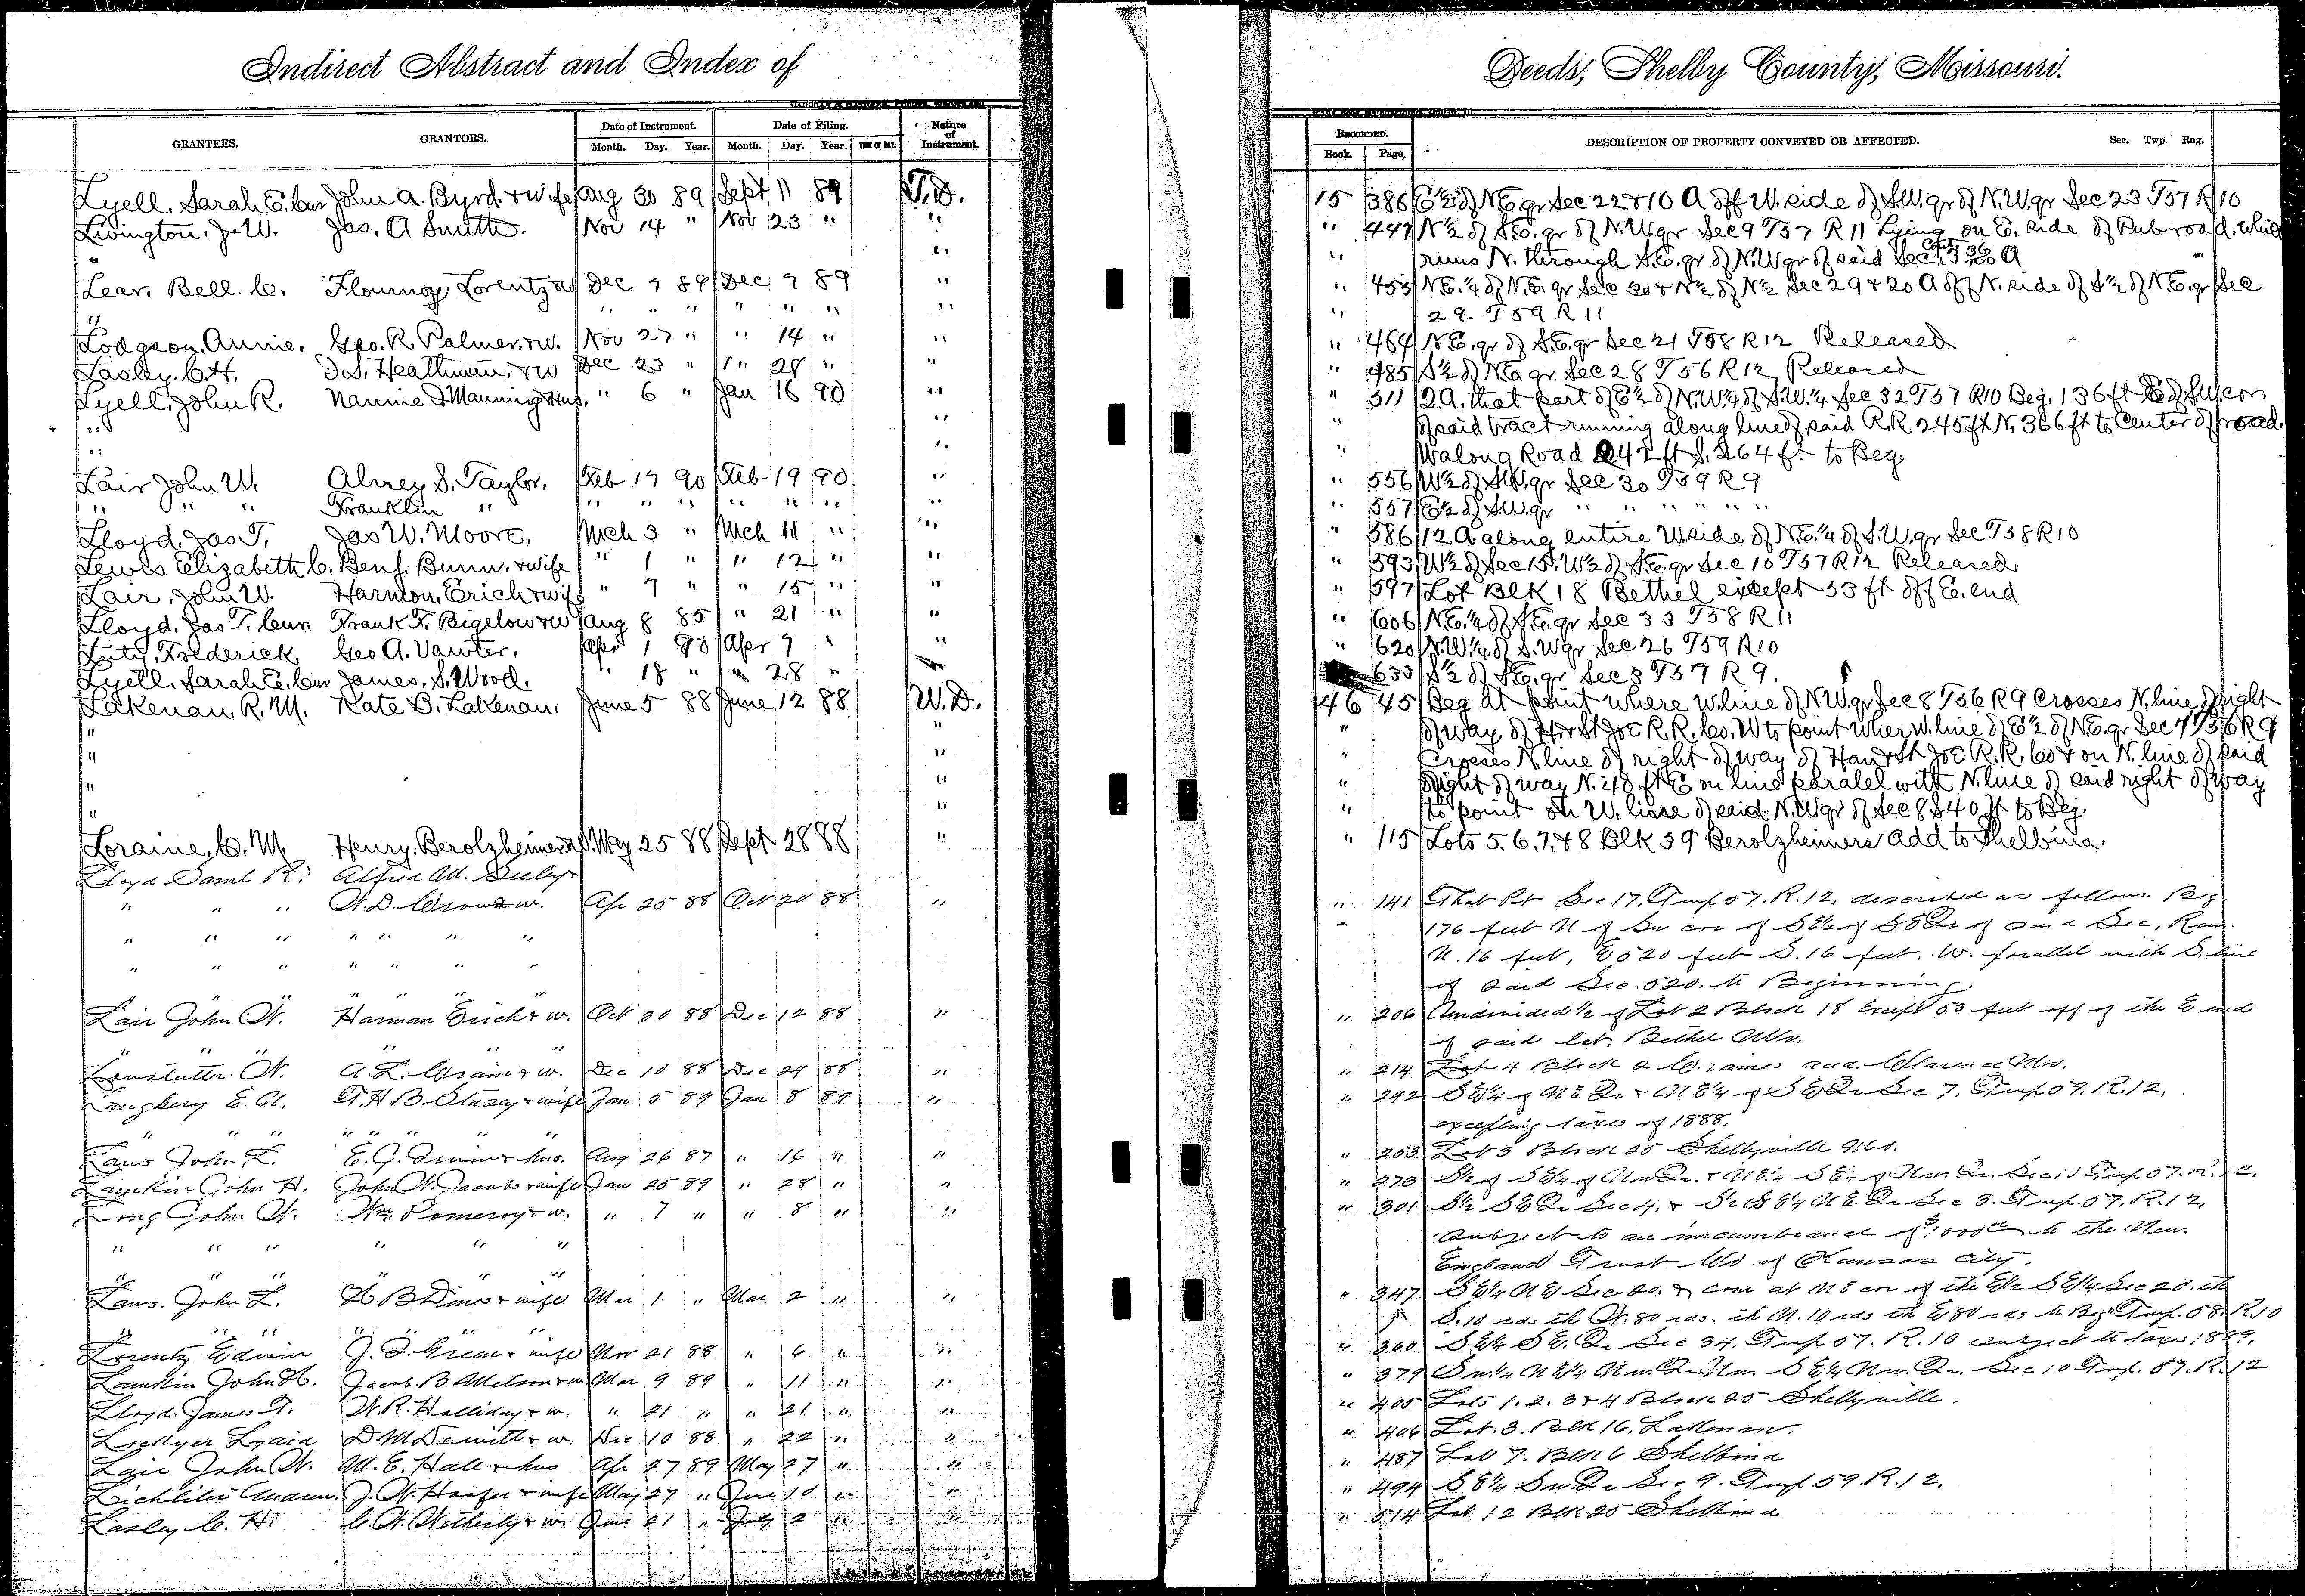 Indirect Abstract and Index of
Deeds, Shelby County, Missouri.
GRANTEES. GRANTORS. Date of Instrument. Date of Filing. Nature of Instrument.
Month. Day. Year. Month. Day. Year. TIME OF DAY.
RECORDED. DESCRIPTION OF PROPERTY CONVEYED OR AFFECTED. Sec. Twp. Rng.
Book. Page.
Lyell, Sarah E. Cur John A. Byrd & Wife Aug 30 89 Sept 11 89 T.D. 15 386 E½ of N.E. qr Sec 22 & 10 A off W. side of S.W. qr of N.W. qr Sec 23 T57 R10
Livington, J.W. Jas. A Smith. Nov 14 " Nov 23 " " " 447 N½ of S.E. qr of N.W qr Sec 9 T57 R11 Lying on E. side of Pub road. which
" " " runs N. through S.E. qr of N.W qr of said Sec
Lear, Bell. C. Flournoy, Lorentz & W Dec 7 89 Dec 7 89 " " 453 N.E. ¼ of N.E. qr Sec 30 & N½ of N½ Sec 29 & 20 A off N. side of S½ of N.E. qr Sec
" " " " " " " " " 29. T59 R11
Lodgson, Annie. Geo. R. Palmer & W. Nov 27 " " 14 " " " 464 N.E. qr of S.E. qr Sec 21 T58 R12 Released
Lasley, C.H. Heathman, & W Dec 23 " " 28 " " " 485 S½ of qr Sec 28 T56 R12 Released
Lyell, John R. Nannie Manning & Hus. " 6 " Jan 16 90 " " 511 2 A. that part of E½ of N.W¼ of S.W.¼ Sec 32 T57 R10 Beg. 136 ft E of S.W. cor.
" " " of said tract running along line of said R.R 245 ft N. 366 ft to Center of road.
" " " W along Road 242 ft S. 264 ft to Beg.
Lair John W. Alney S. Taylor. Feb 17 90 Feb 19 90. " " 556 W½ of S.W. qr Sec 30 T59 R9
" " " Franklin " " " " " " " " " 557 E½ of S.W. qr " " " " "
Lloyd, Jas T. Jas W. Moore. Mch 3 " Mch 11 " " " 586 12 A along entire W side of N.E.¼ of S.W. qr Sec T58 R10
Lewis Elizabeth C. Benj. Bunn. & wife " 1 " " 12 " " " 593 W½ of Sec 15. W½ of S.E. qr Sec 10 T57 R12 Released
Lair, John W. Harmon, Erich & wife " 7 " " 15 " " " 597 Lot BLK 18 Bethel except 53 ft off E. end
Lloyd, Jas T. Cur Frank F. Bigelow & W Aug 8 85 " 21 " " " 606 N.E.¼ of S.E. qr Sec 33 T58 R11
Luty, Frederick Geo A. Vawter. Apr 1 90 Apr 7 " " " 620 N.W¼ of S.W qr Sec 26 T59 R10
Lyell, Sarah E. Cur James, S. Wood. " 18 " " 28 " " 633 S½ of S.E. qr Sec 3 T57 R9.
Lakenan, R.M. Kate B. Lakenan. June 5 88 June 12 88 W.D. 46 45 Beg at point where W. line of N W. qr Sec 8 T56 R9 Crosses N. line of right
" " " of way of H & St Joe R.R. Co. W to point wher W. line of E½ of N.E. qr Sec 7 T56 R9
" " " Crosses N. line of right of way of Han & St Joe R.R. Co & on N. line of said
" " " Right of way N. 40 ft E on line paralel with N. line of said right of way
" " " to point on W. line of said N.W qr of Sec 8 S 40 ft to Beg.
Loraine, C.M. Henry. Berolzheimer & W. May 25 88 Sept. 28 88 " " 115 Lots 5. 6, 7, & 8 Blk 39 Berolzheimers Add to Shelbina.
Lloyd Saml R. Alfred M. Seely
" " " W.D. Crow & w. Apr 25 88 Oct 20 88 " " 141 That Pt Sec 17, Twp 57. R. 12, described as follows. Beg
" " " " " " " " 176 feet N of Sw cor of S E¼ of S E Qr of said Sec, Run
" " " " " " " N. 16 feet, E 520 feet S. 16 feet. W. parallel with S. line
" " " " " " of said Sec. 520. to Beginning.
Lair John W. Harman Erich & w. Oct 30 88 Dec 12 88 " " 206 Undivided ½ of Lot 2 Block 18 Except 53 feet off of the E end
" " " " " " of said lot. Bethel Mo.
W. A. L. & w. Dec 10 88 Dec 24 88 " " 214 Lot 4 Block 2 add. Clarence Mo.
E. T. H B. Stacey & wife Jan 5 89 Jan 8 89 " " 242 S E¼ of N E Qr & N E¼ of S E Qr Sec 7. Twp 57. R. 12,
" " " " " " " excepting taxes of 1888.
Laws John L. E. G. & hus. Aug 26 87 " 16 " " " 253 Lot 3 Block 25 Shelbyville Mo.
Lamkin John H. John W. Jacobs & wife Jan 25 89 " 28 " " 273
Long John W. Wm. Pomeroy & w. " 7 " " 8 " " " 301 S½ S E Qr Sec 4. & S½ S E¼ N E. Qr Sec 3. Twp. 57. R. 12,
" " " " " " Subject to an incumbrance of to the New
" " " " " " England Trust Co of Kansas City.
Laws. John L. H B Dines & wife Mar 1 " Mar 2 " " " 347 S E¼ N E Sec 20. & com at N E cor of the E½ S E¼ Sec 20. th
" " " " " " S. 10 rds th W. 80 rds. th N. 10 rds th E 80 rds to Beg. Twp. 58. R. 10
Lorentz Edwin J. D. & wife Nov 21 88 " 6 " " " 360 Sec 34. Twp 57. R. 10 subject to taxes 1889.
Lamkin John H. Jacob. B Melson & w Mar 9 89 " 11 " " " 379 Sw¼ N E¼ Nw Qr S E¼ Nw Qr Sec 10 Twp. 57. R. 12
Lloyd. James T. W. R. Halliday & w. " 21 " " 21 " " " 405 Lots 1. 2. 3 & 4 Block 25 Shelbyville.
D M Dewitt & w. Dec 10 88 " 22 " " " 406 Lot. 3. Blk 16. Lakenan.
Lair John W. M. E. Hale & hus Apr 27 89 May 27 " " " 487 Lot 7. Blk 6 Shelbina
J. W. & wife May 27 " June 10 " " " 494 S E¼ Sw. Qr Sec 9. Twp 59. R. 12.
Lasley C. H. C. W. & w. June 21 " July 2 " " " 514 Lot 12 Blk 25 Shelbina